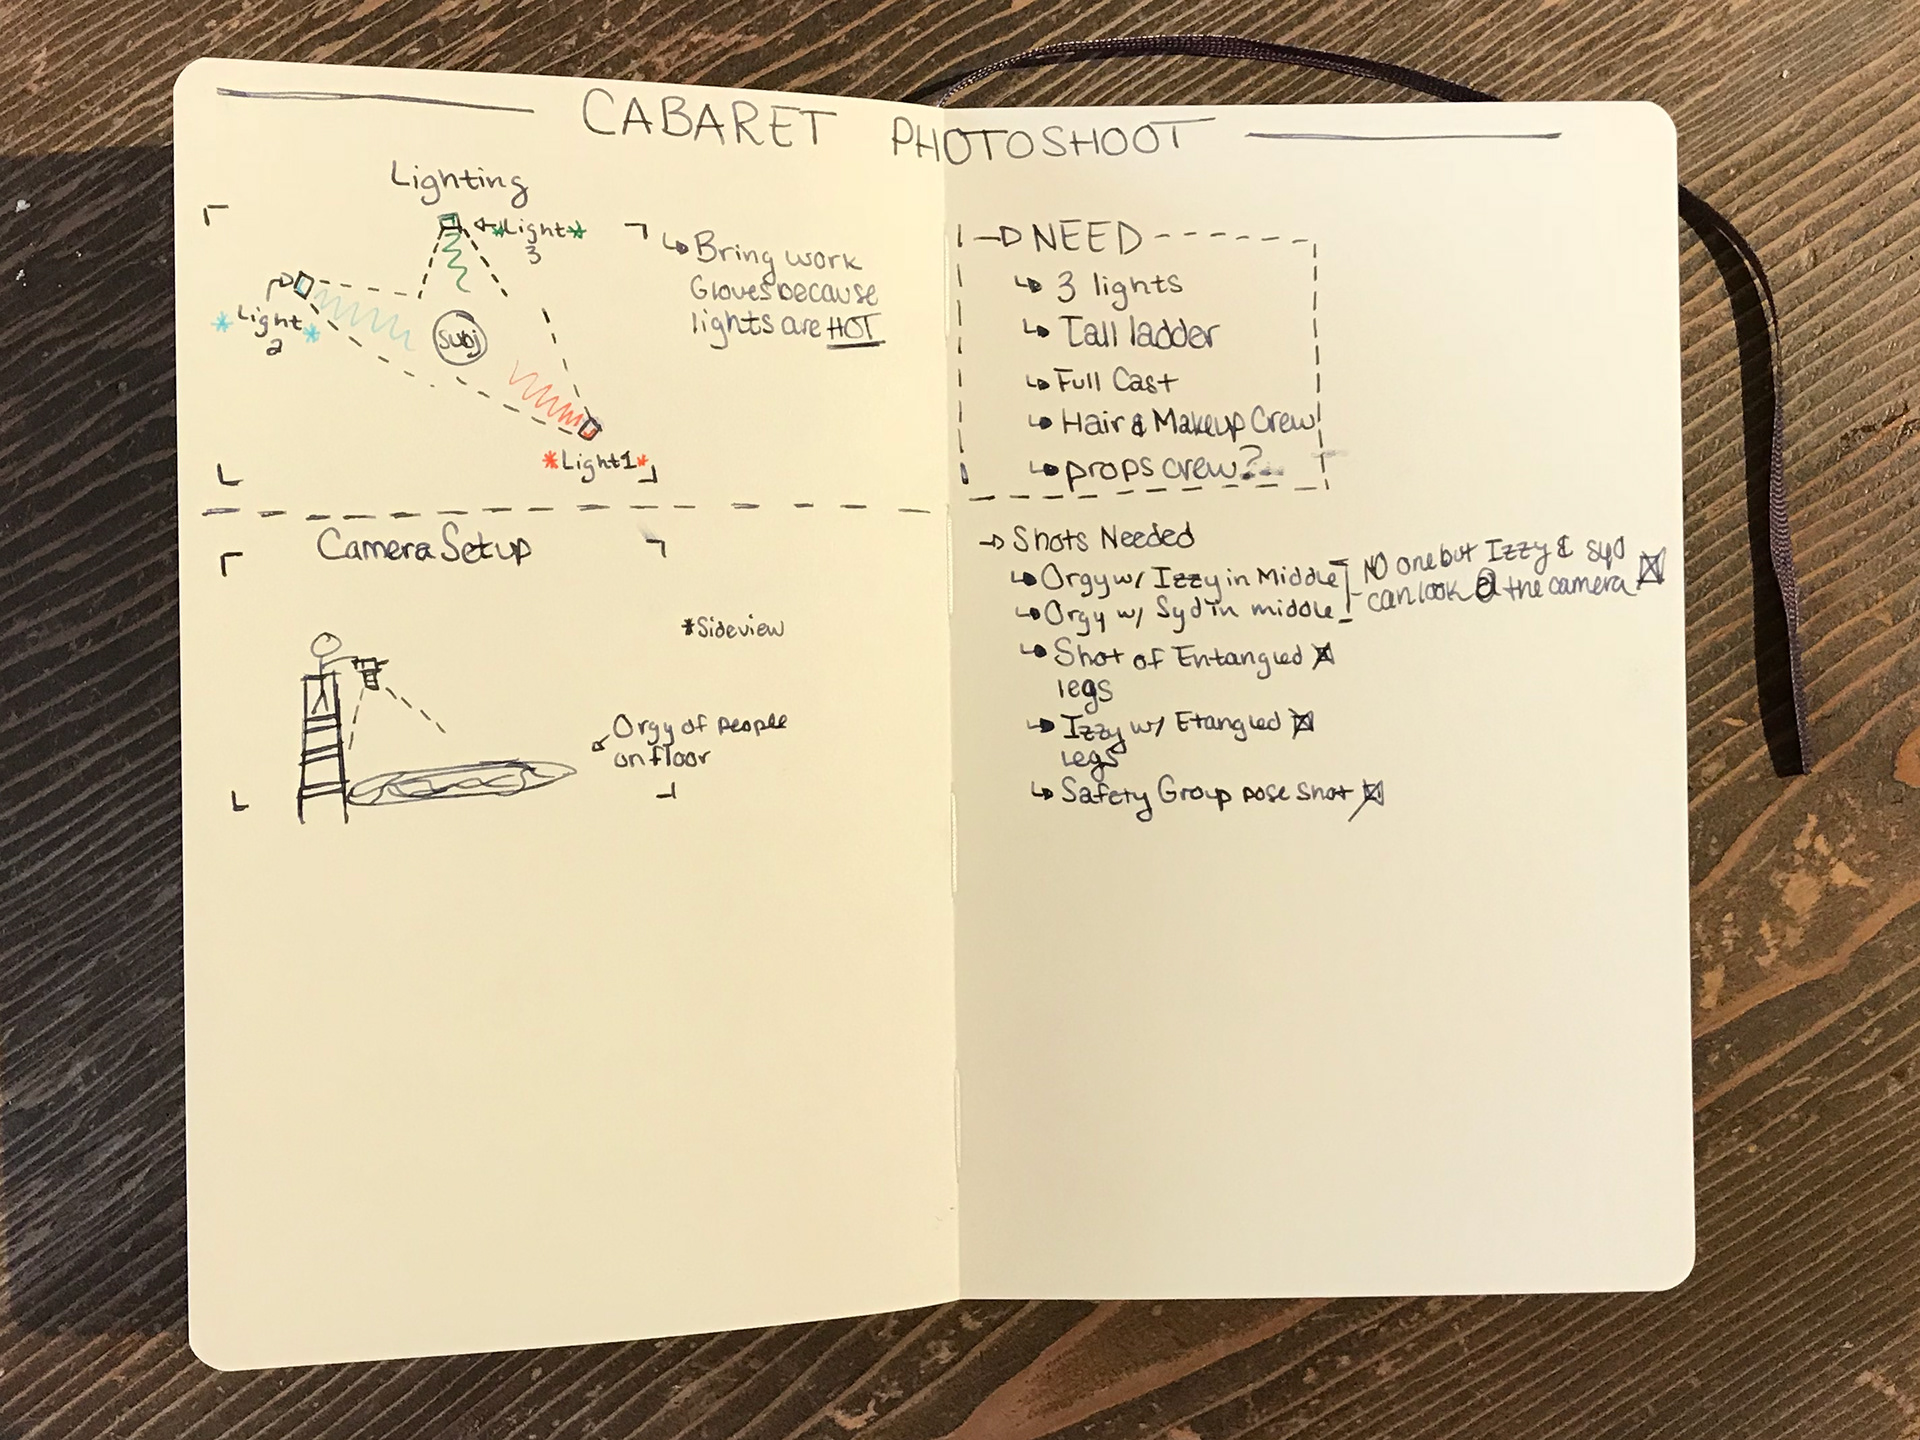 CABARET PHOTOSHOOT
Lighting
*Light*
3
*Light*
2
Subj
*Light 1*
↳ Bring work
Gloves because
lights are HOT
Camera Setup
*Sideview
Orgy of people
on floor
→ NEED
↳ 3 lights
↳ Tall ladder
↳ Full Cast
↳ Hair & Makeup Crew
↳ props crew?
→ Shots Needed
↳ Orgy w/ Izzy in Middle
↳ Orgy w/ Syd in middle
NO one but Izzy & Syd
can look @ the camera ☒
↳ Shot of Entangled ☒
legs
↳ Izzy w/ Etangled ☒
legs
↳ Safety Group pose shot ☒